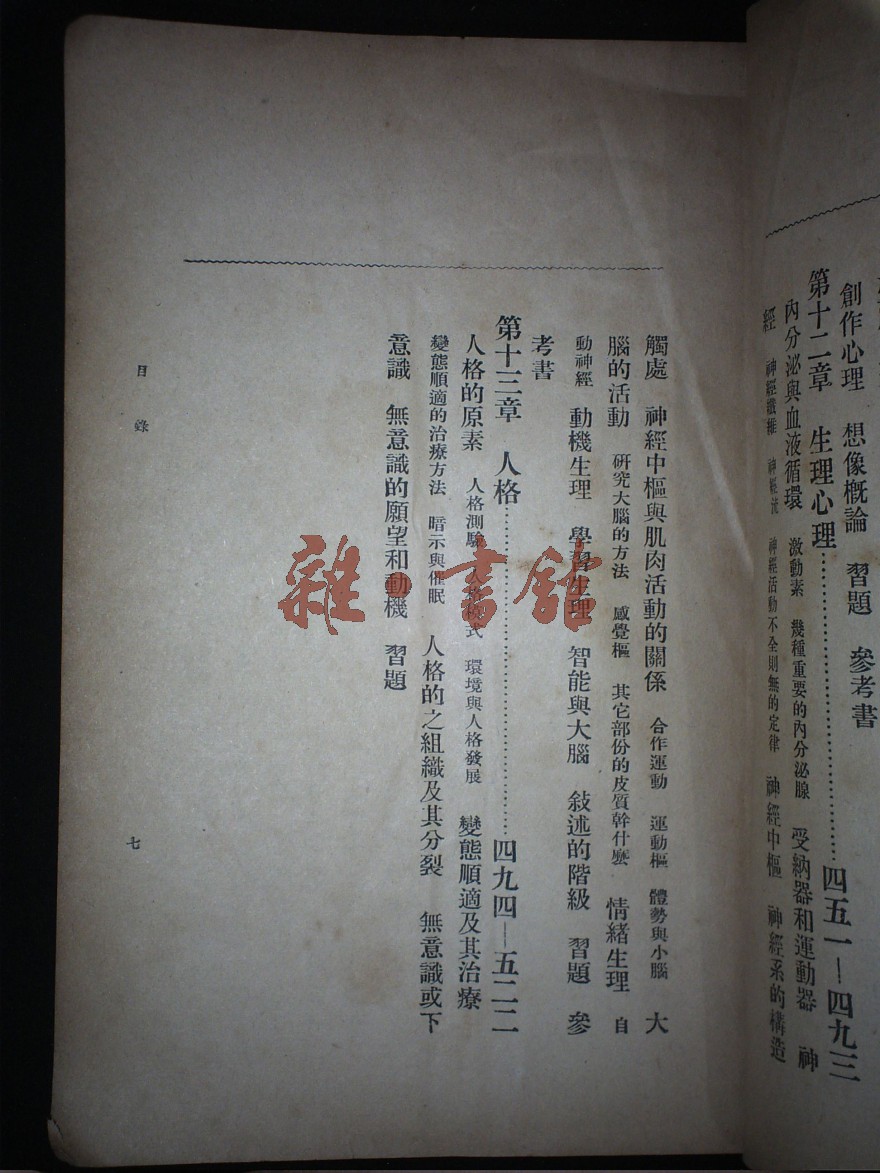 創作心理　想像概論　習題　參考書
第十二章　生理心理……………………四五一—四九三
內分泌與血液循環　激動素　幾種重要的內分泌腺　受納器和運動器　神
經　神經纖維　神經流　神經活動不全則無的定律　神經中樞　神經系的構造
觸處　神經中樞與肌肉活動的關係　合作運動　運動樞　體勢與小腦　大
腦的活動　研究大腦的方法　感覺樞　其它部份的皮質幹什麼　情緒生理　自
動神經　動機生理　學習生理　智能與大腦　敍述的階級　習題　參
考書
第十三章　人格……………………四九四—五二二
人格的原素　人格測驗　人格模式　環境與人格發展　變態順適及其治療
變態順適的治療方法　暗示與催眠　人格的之組織及其分裂　無意識或下
意識　無意識的願望和動機　習題
目錄
七
雜·書館